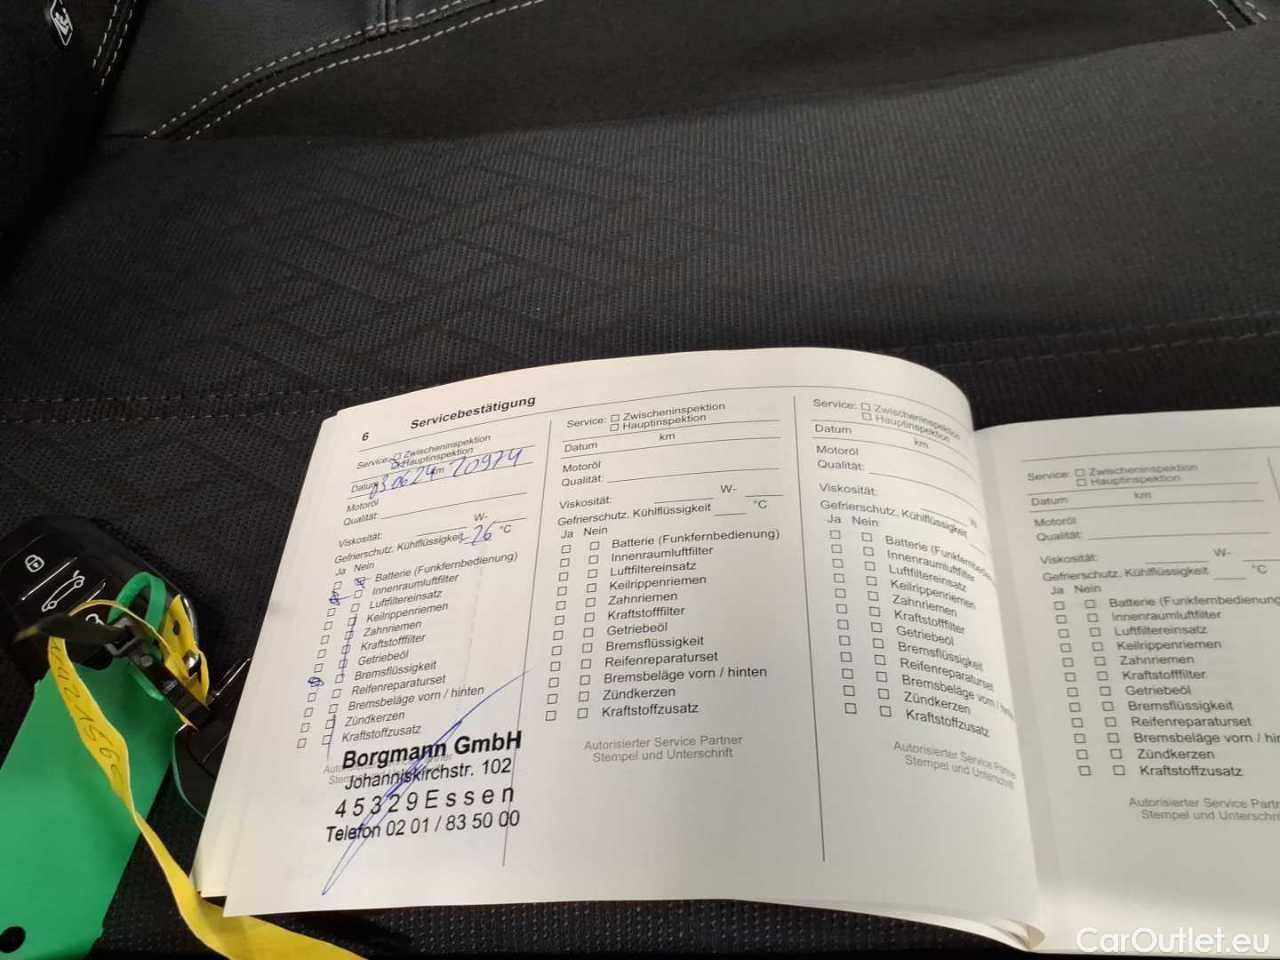 6 Servicebestätigung
Service: Zwischeninspektion
Hauptinspektion
Datum 03.06.24 km 20974
Motoröl
Qualität:
Viskosität: W-
Gefrierschutz, Kühlflüssigkeit -26 °C
Ja Nein
Batterie (Funkfernbedienung)
Innenraumluftfilter
Luftfiltereinsatz
Keilrippenriemen
Zahnriemen
Kraftstofffilter
Getriebeöl
Bremsflüssigkeit
Reifenreparaturset
Bremsbeläge vorn / hinten
Zündkerzen
Kraftstoffzusatz
Borgmann GmbH
Johanniskirchstr. 102
45329 Essen
Telefon 02 01 / 83 50 00
Service: Zwischeninspektion
Hauptinspektion
Datum km
Motoröl
Qualität:
Viskosität: W-
Gefrierschutz, Kühlflüssigkeit °C
Ja Nein
Batterie (Funkfernbedienung)
Innenraumluftfilter
Luftfiltereinsatz
Keilrippenriemen
Zahnriemen
Kraftstofffilter
Getriebeöl
Bremsflüssigkeit
Reifenreparaturset
Bremsbeläge vorn / hinten
Zündkerzen
Kraftstoffzusatz
Autorisierter Service Partner
Stempel und Unterschrift
Service: Zwischeninspektion
Hauptinspektion
Datum km
Motoröl
Qualität:
Viskosität: W
Gefrierschutz, Kühlflüssigkeit
Ja Nein
Batterie (Funkfernbedien
Innenraumluftfilter
Luftfiltereinsatz
Keilrippenriemen
Zahnriemen
Kraftstofffilter
Getriebeöl
Bremsflüssigkeit
Reifenreparaturset
Bremsbeläge vorn / hinten
Zündkerzen
Kraftstoffzusatz
Autorisierter Service Partner
Stempel und Unterschrift
Service: Zwischeninspektion
Hauptinspektion
Datum km
Motoröl
Qualität:
Viskosität: W-
Gefrierschutz, Kühlflüssigkeit °C
Ja Nein
Batterie (Funkfernbedienung
Innenraumluftfilter
Luftfiltereinsatz
Keilrippenriemen
Zahnriemen
Kraftstofffilter
Getriebeöl
Bremsflüssigkeit
Reifenreparaturset
Bremsbeläge vorn / hin
Zündkerzen
Kraftstoffzusatz
Autorisierter Service Partn
Stempel und Unterschri
CarOutlet.eu